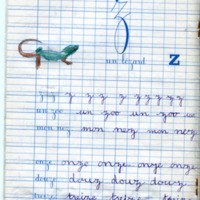 z
un lézard z
z z z z z z z z z z
un zoo un zoo un zoo
mon nez mon nez mon nez
onze onze onze onze onze
douz douz douz douz
treize treize treize treize